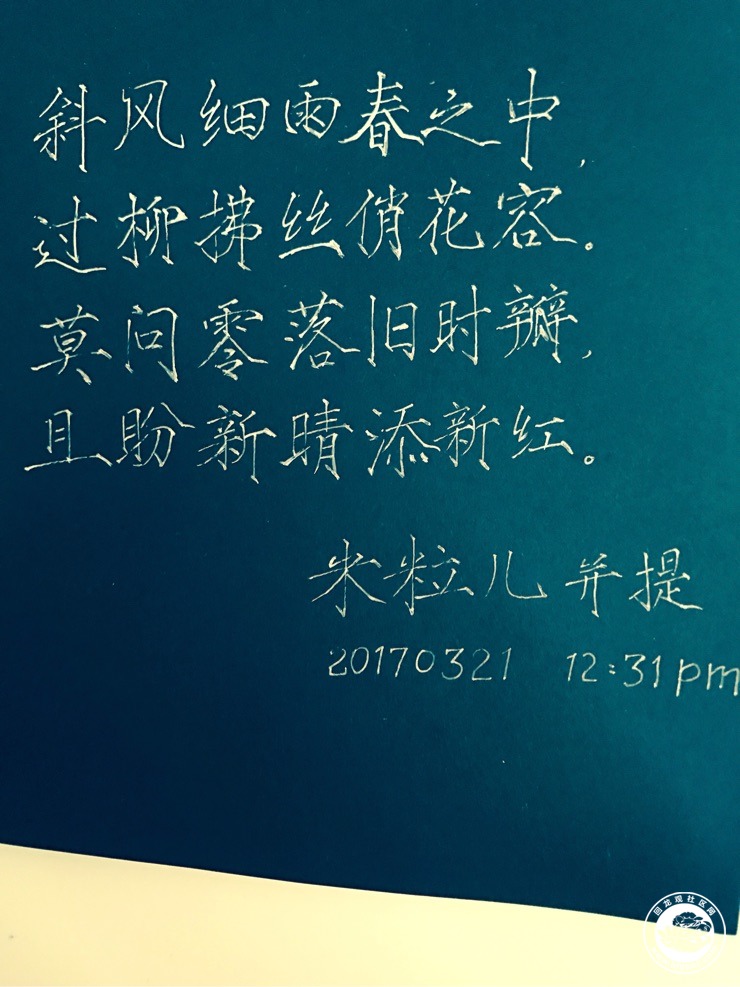 斜风细雨春之中,
过柳拂丝俏花容。
莫问零落旧时瓣,
且盼新晴添新红。
米粒儿 并提
20170321 12:31pm
回龙观社区网